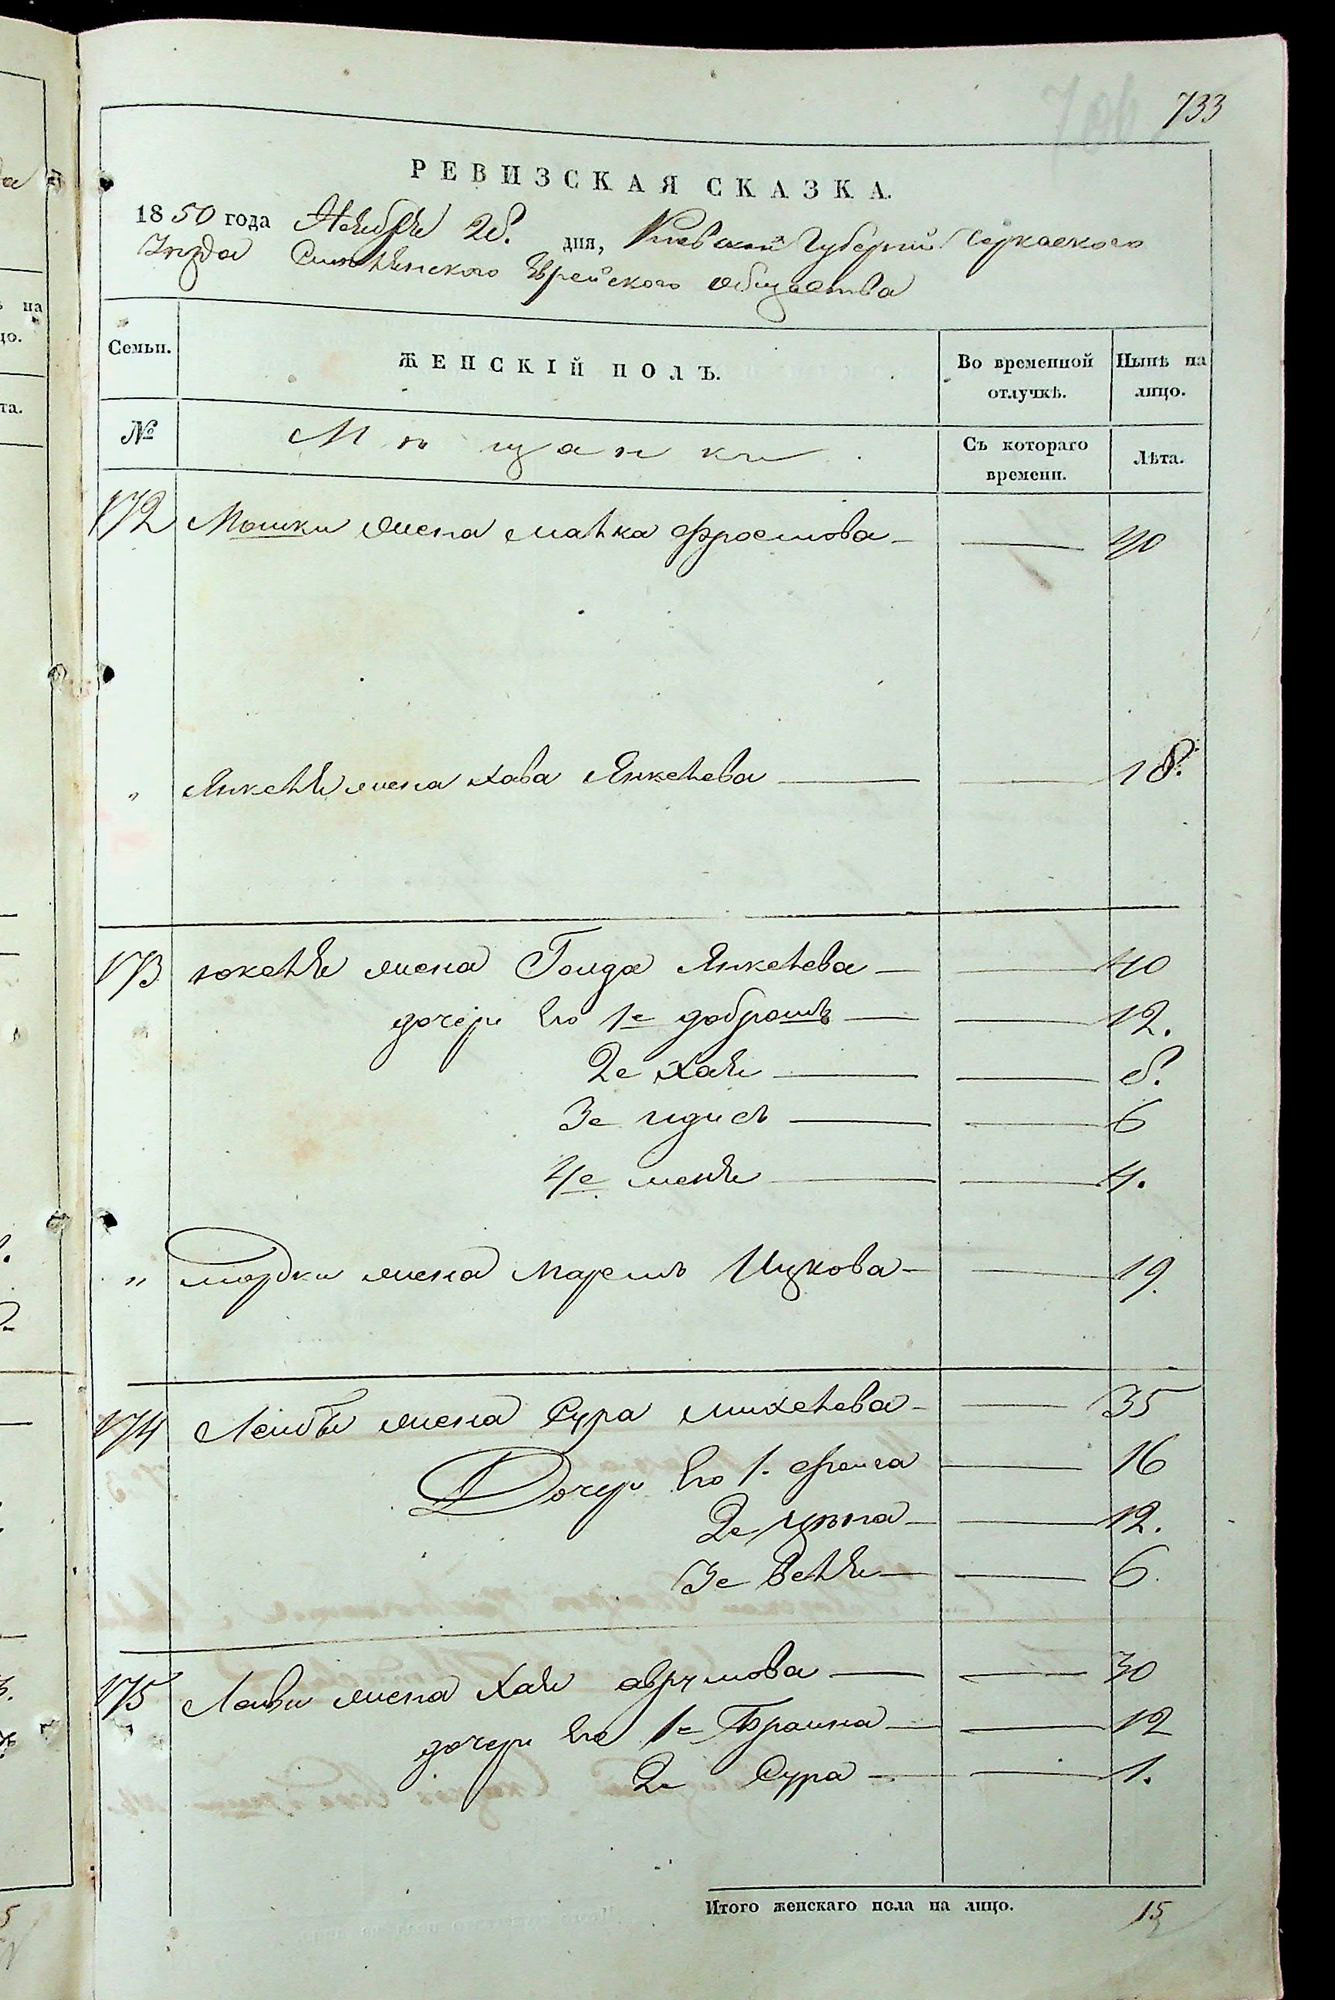 733
РЕВИЗСКАЯ СКАЗКА.
1850 года Ноября 28. дня, Киевской Губернии Черкаского
Уезда Смелянского Еврейского общества
Семьи.
ЖЕНСКІЙ ПОЛЪ.
Во временной отлучкѣ.
Нынѣ на лицо.
№
Мѣщанки
Съ котораго времени.
Лѣта.
172 Мошки жена Малка Фроимова — — 40
" Янкеля жена Хава Янкелева — — 18.
173 Юкеля жена Голда Янкелева — — 40
дочери его 1е Доброшъ — — 12.
2е Хая — — 8.
3е Идисъ — — 6
4е Меня — — 4.
" Мордки жена Маремъ Ицкова — — 19.
174 Лейбы жена Сура Михелева — — 35
Дочери его 1. Фейга — 16
2е Ципа — — 12.
3е Веля — — 6.
175 Лейви жена Хая Аврумова — — 30
дочери его 1е Браина — — 12
2е Сура — — 1.
Итого женскаго пола на лицо. 15